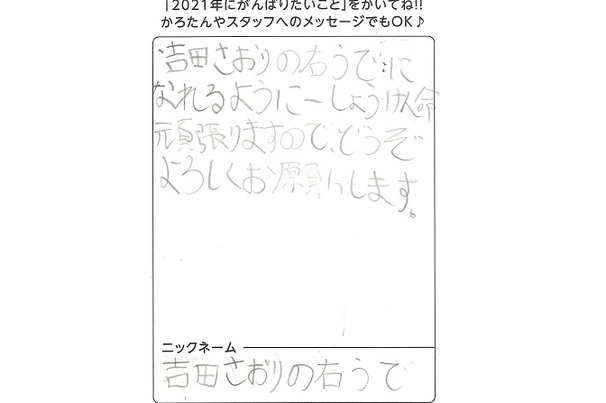 「2021年にがんばりたいこと」をかいてね!!
かろたんやスタッフへのメッセージでもOK♪
吉田さおりの右うでに
なれるようにーしょうけん命
頑張りますので、どうぞ
よろしくお願いします。
ニックネーム
吉田さおりの右うで